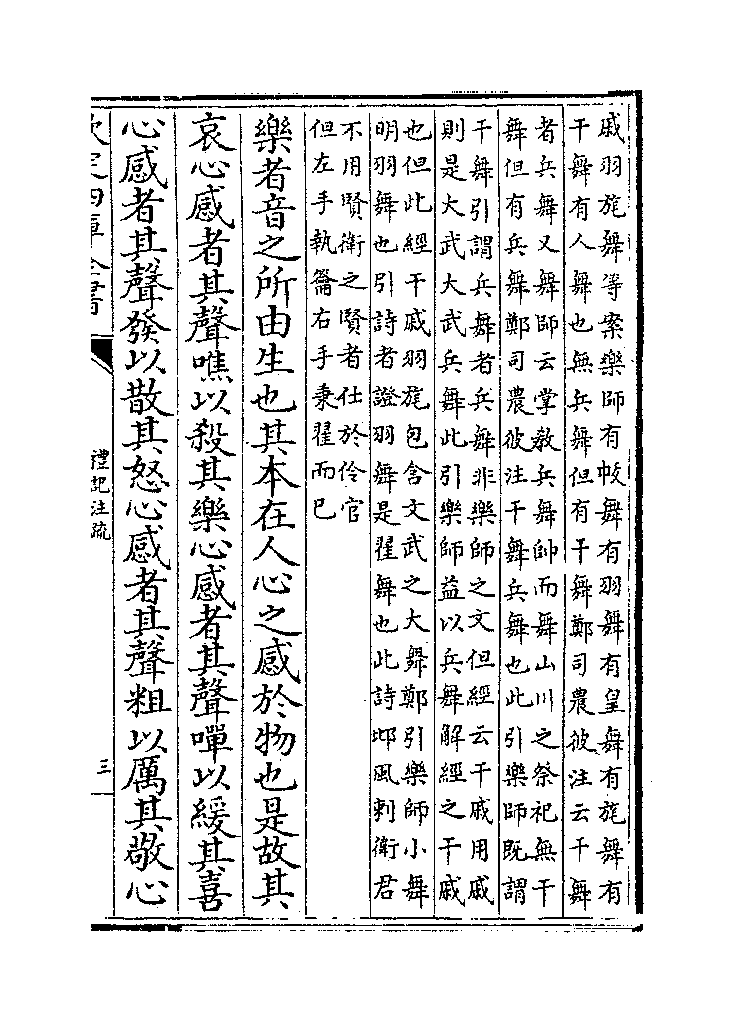 戚羽旄舞等案樂師有帗舞有羽舞有皇舞有旄舞有
干舞有人舞也無兵舞但有干舞鄭司農彼注云干舞
者兵舞又舞師云掌教兵舞帥而舞山川之祭祀無干
舞但有兵舞鄭司農彼注干舞兵舞也此引樂師既謂
干舞引謂兵舞者兵舞非樂師之文但經云干戚用戚
則是大武大武兵舞此引樂師益以兵舞解經之干戚
也但此經干戚羽旄包含文武之大舞鄭引樂師小舞
明羽舞也引詩者證羽舞是翟舞也此詩邶風刺衛君
不用賢衛之賢者仕於伶官
但左手執籥右手秉翟而已
樂者音之所由生也其本在人心之感於物也是故其
哀心感者其聲噍以殺其樂心感者其聲嘽以緩其喜
心感者其聲發以散其怒心感者其聲粗以厲其敬心
欽定四庫全書
禮記注疏
三